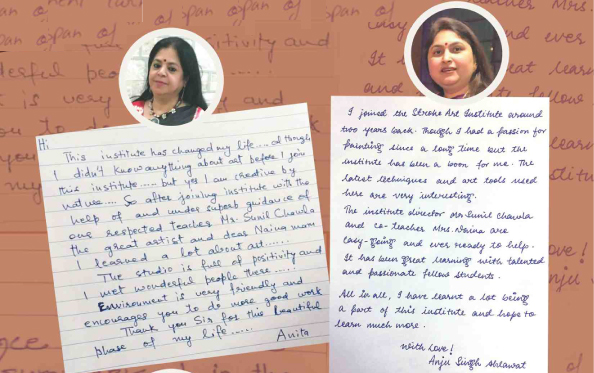 Hi
This institute has changed my life.....although
I didn't know anything about art before I join
this institute..... but yes I am creative by
nature.... So after joining institute with the
help of and under superb guidance of
our respected teacher Mr. Sunil Chawla
the great artist and dear Naina mam
I learned a lot about art......
The studio is full of positivity and
I met wonderful people there.....
Environment is very friendly and
encourages you to do more good work
Thank you Sir for this beautiful
phase of my life......
Anita
I joined the Stroke Art Institute around
two years back. Though I had a passion for
painting since a long time but the
institute has been a boon for me. The
latest techniques and art tools used
here are very interesting.
The institute director Mr. Sunil Chawla
and co-teacher Mrs. Naina are
easy-going and ever ready to help.
It has been great learning with talented
and passionate fellow students.
All in all, I have learnt a lot being
a part of this institute and hope to
learn much more.
With Love!
Anju Singh Ahlawat